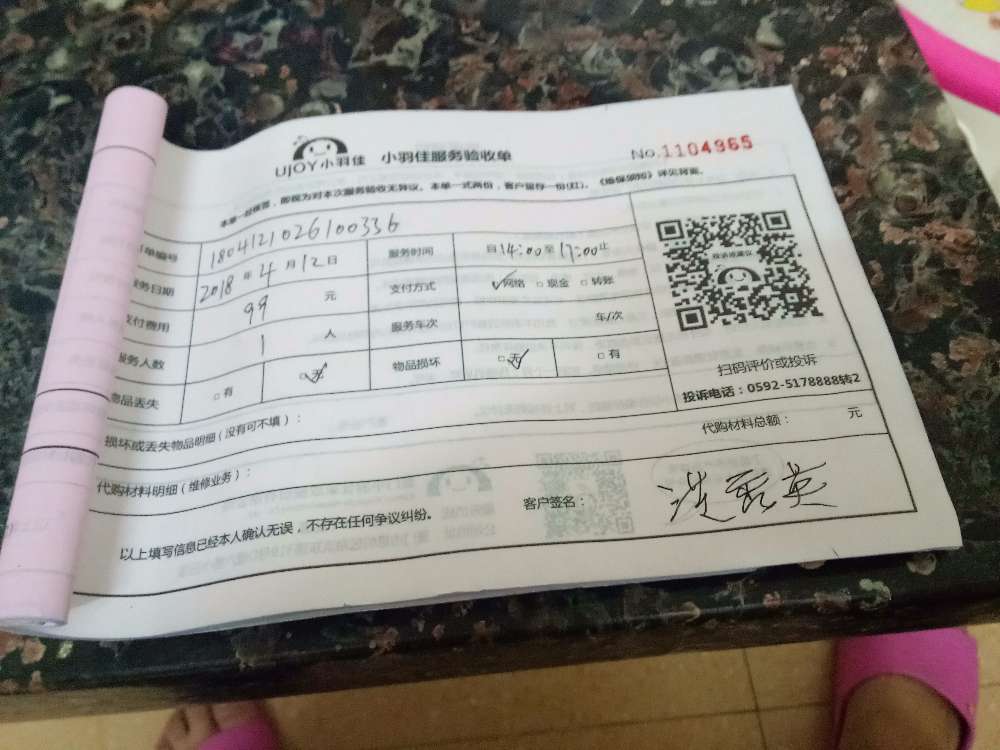 UJOY小羽佳 小羽佳服务验收单 No.1104965
本单一经签署，即视为对本次服务验收无异议。本单一式两份，客户留存一份(红)。《维保须知》详见背面。
单编号 1804121026100336
服务日期 2018 年 4 月 12 日 服务时间 自14:00至17:00止
支付费用 99 元 支付方式 ☑网络 □现金 □转账
服务人数 1 人 服务车次 车/次
物品丢失 □有 ☑无 物品损坏 ☑无 □有
投诉或建议
扫码评价或投诉
投诉电话：0592-5178888转2
损坏或丢失物品明细（没有可不填）：
代购材料明细（维修业务）： 代购材料总额： 元
以上填写信息已经本人确认无误，不存在任何争议纠纷。 客户签名：